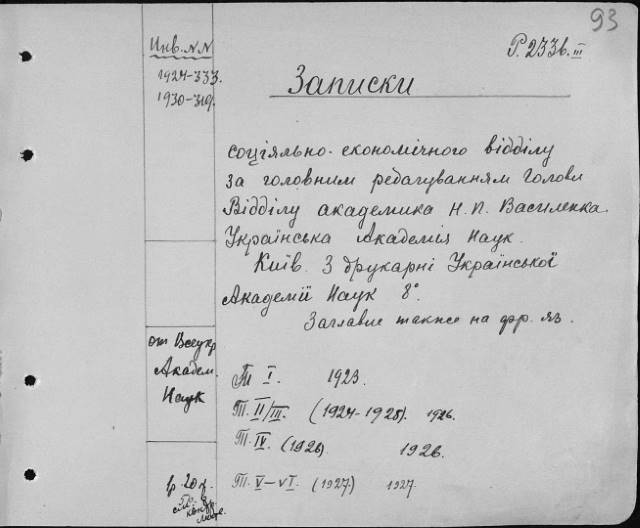 93
Инв. N.N
1924-333.
1930-319.
P. 233б. III
Записки
соціяльно-економічного відділу
за головним редагуванням Голови
Відділу академика Н. П. Василенка.
Українська Академія Наук.
Київ. З друкарні Української
Академії Наук 8°.
Заглавие также на фр. яз.
от Всеукр.
Академ.
Наук
Т. I. 1923.
Т. II/III. (1924-1925). 1926.
Т. IV. (1926) 1926.
Т. V-VI. (1927) 1927.